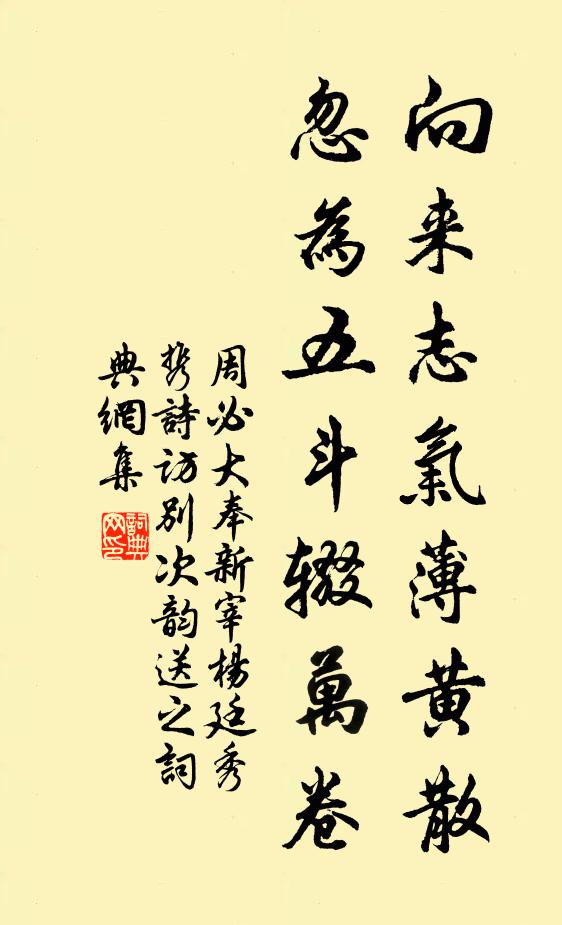 向来志氣薄黄散
忽為五斗辍萬卷
周必大奉新宰楊廷秀
携詩訪別次韵送之詞
典網集
詞典
网印